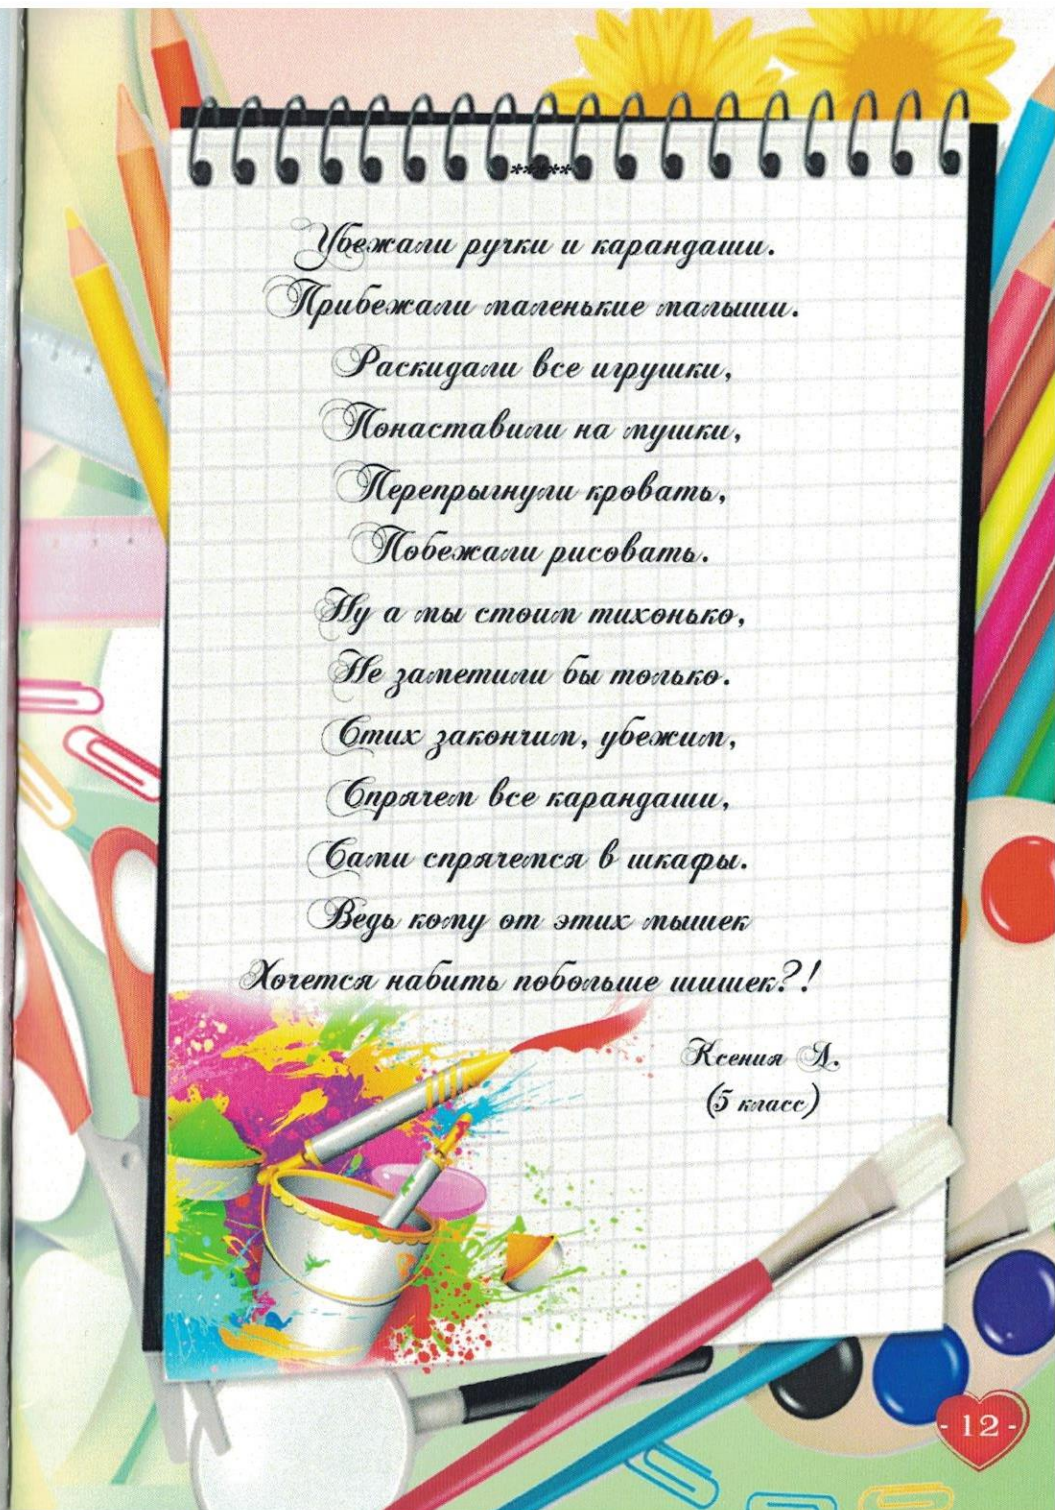 *****
Убежали ручки и карандаши.
Прибежали маленькие малыши.
Раскидали все игрушки,
Понаставили на мушки,
Перепрыгнули кровать,
Побежали рисовать.
Ну а мы стоим тихонько,
Не заметили бы только.
Стих закончим, убежим,
Спрячем все карандаши,
Сами спрячемся в шкафы.
Ведь кому от этих мышек
Хочется набить побольше шишек?!
Ксения А.
(5 класс)
- 12 -